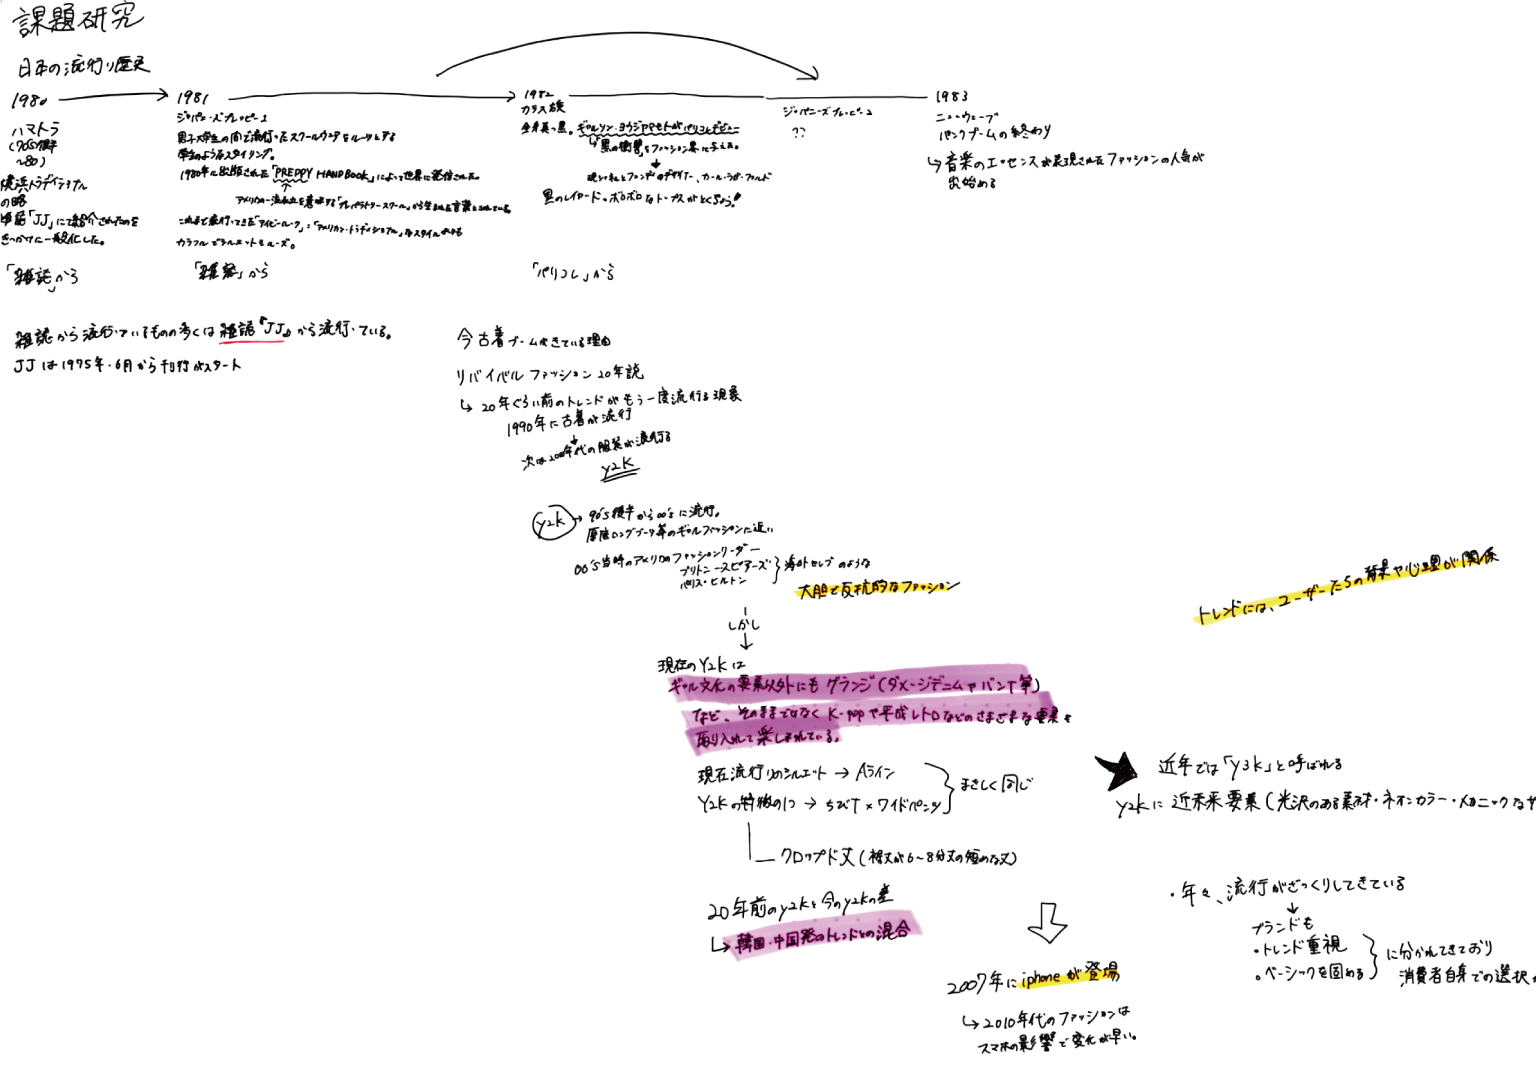 課題研究
日本の流行り歴史
1980
ハマトラ
(70's後半
~80)
横浜トラディショナル
の略
雑誌「JJ」にて紹介されたのを
きっかけに一般化した。
「雑誌」から
1981
ジャパニーズプレッピー
男子大学生の間で流行ったスクールウェアをルーツとする
学生のようなスタイリング。
1980年に出版された「PREPPY HANDBOOK」によって世界に発信された。
アメリカの一流私立を意味する「プレパラトリースクール」から生まれた言葉とされている。
これまで流行ってきた「アイビールック」:「アメリカン・トラディショナル」なスタイルよりも
カラフルでシルエットもルーズ。
「雑誌」から
1982
カラス族
全身真っ黒。ギャルソン・ヨウジヤマモトがパリコレデビュー
↳「黒の衝撃」をファッション界に与えた。
現シャネルとフェンディのデザイナー、カール・ラガーフェルド
黒のレイヤード。ボロボロなトップスがとくちょう!
「パリコレ」から
ジャパニーズプレッピー2
??
1983
ニューウェーブ
パンクブームの終わり
↳音楽のエッセンスが表現されたファッションの人気が
出始める
雑誌から流行っているものの多くは雑誌『JJ』から流行っている。
JJは1975年・6月から刊行がスタート
今古着ブームがきている理由
リバイバルファッション20年説
↳20年ぐらい前のトレンドがもう一度流行る現象
1990年に古着が流行
↓
次は2000年代の服装が流行る
Y2K
Y2K→90's後半から00'sに流行。
厚底ロングブーツ等のギャルファッションに近い
00's当時のアメリカのファッションリーダー
ブリトニースピアーズ
パリス・ヒルトン
海外セレブのような
大胆で反抗的なファッション
しかし
↓
現在のY2Kは
ギャル文化の要素以外にもグランジ(ダメージデニムやバンドT等)
など、そのままではなくK-popや平成レトロなどのさまざまな要素を
取り入れて楽しまれている。
現在流行りのシルエット→Aライン
Y2Kの特徴の1つ→ちびT×ワイドパンツ
まさしく同じ
クロップド丈(裾丈が6~8分丈の短めな丈)
20年前のy2kと今のy2kの差
↳韓国・中国発のトレンドとの混合
2007年にiphoneが登場
↳2010年代のファッションは
スマホの影響で変化が早い。
トレンドには、ユーザーたちの背景や心理が関係
近年では「y3k」と呼ばれる
y2kに近未来要素(光沢のある素材・ネオンカラー・メカニックな
・年々、流行がざっくりしてきている
↓
ブランドも
・トレンド重視
・ベーシックを固める
に分かれてきており
消費者自身での選択